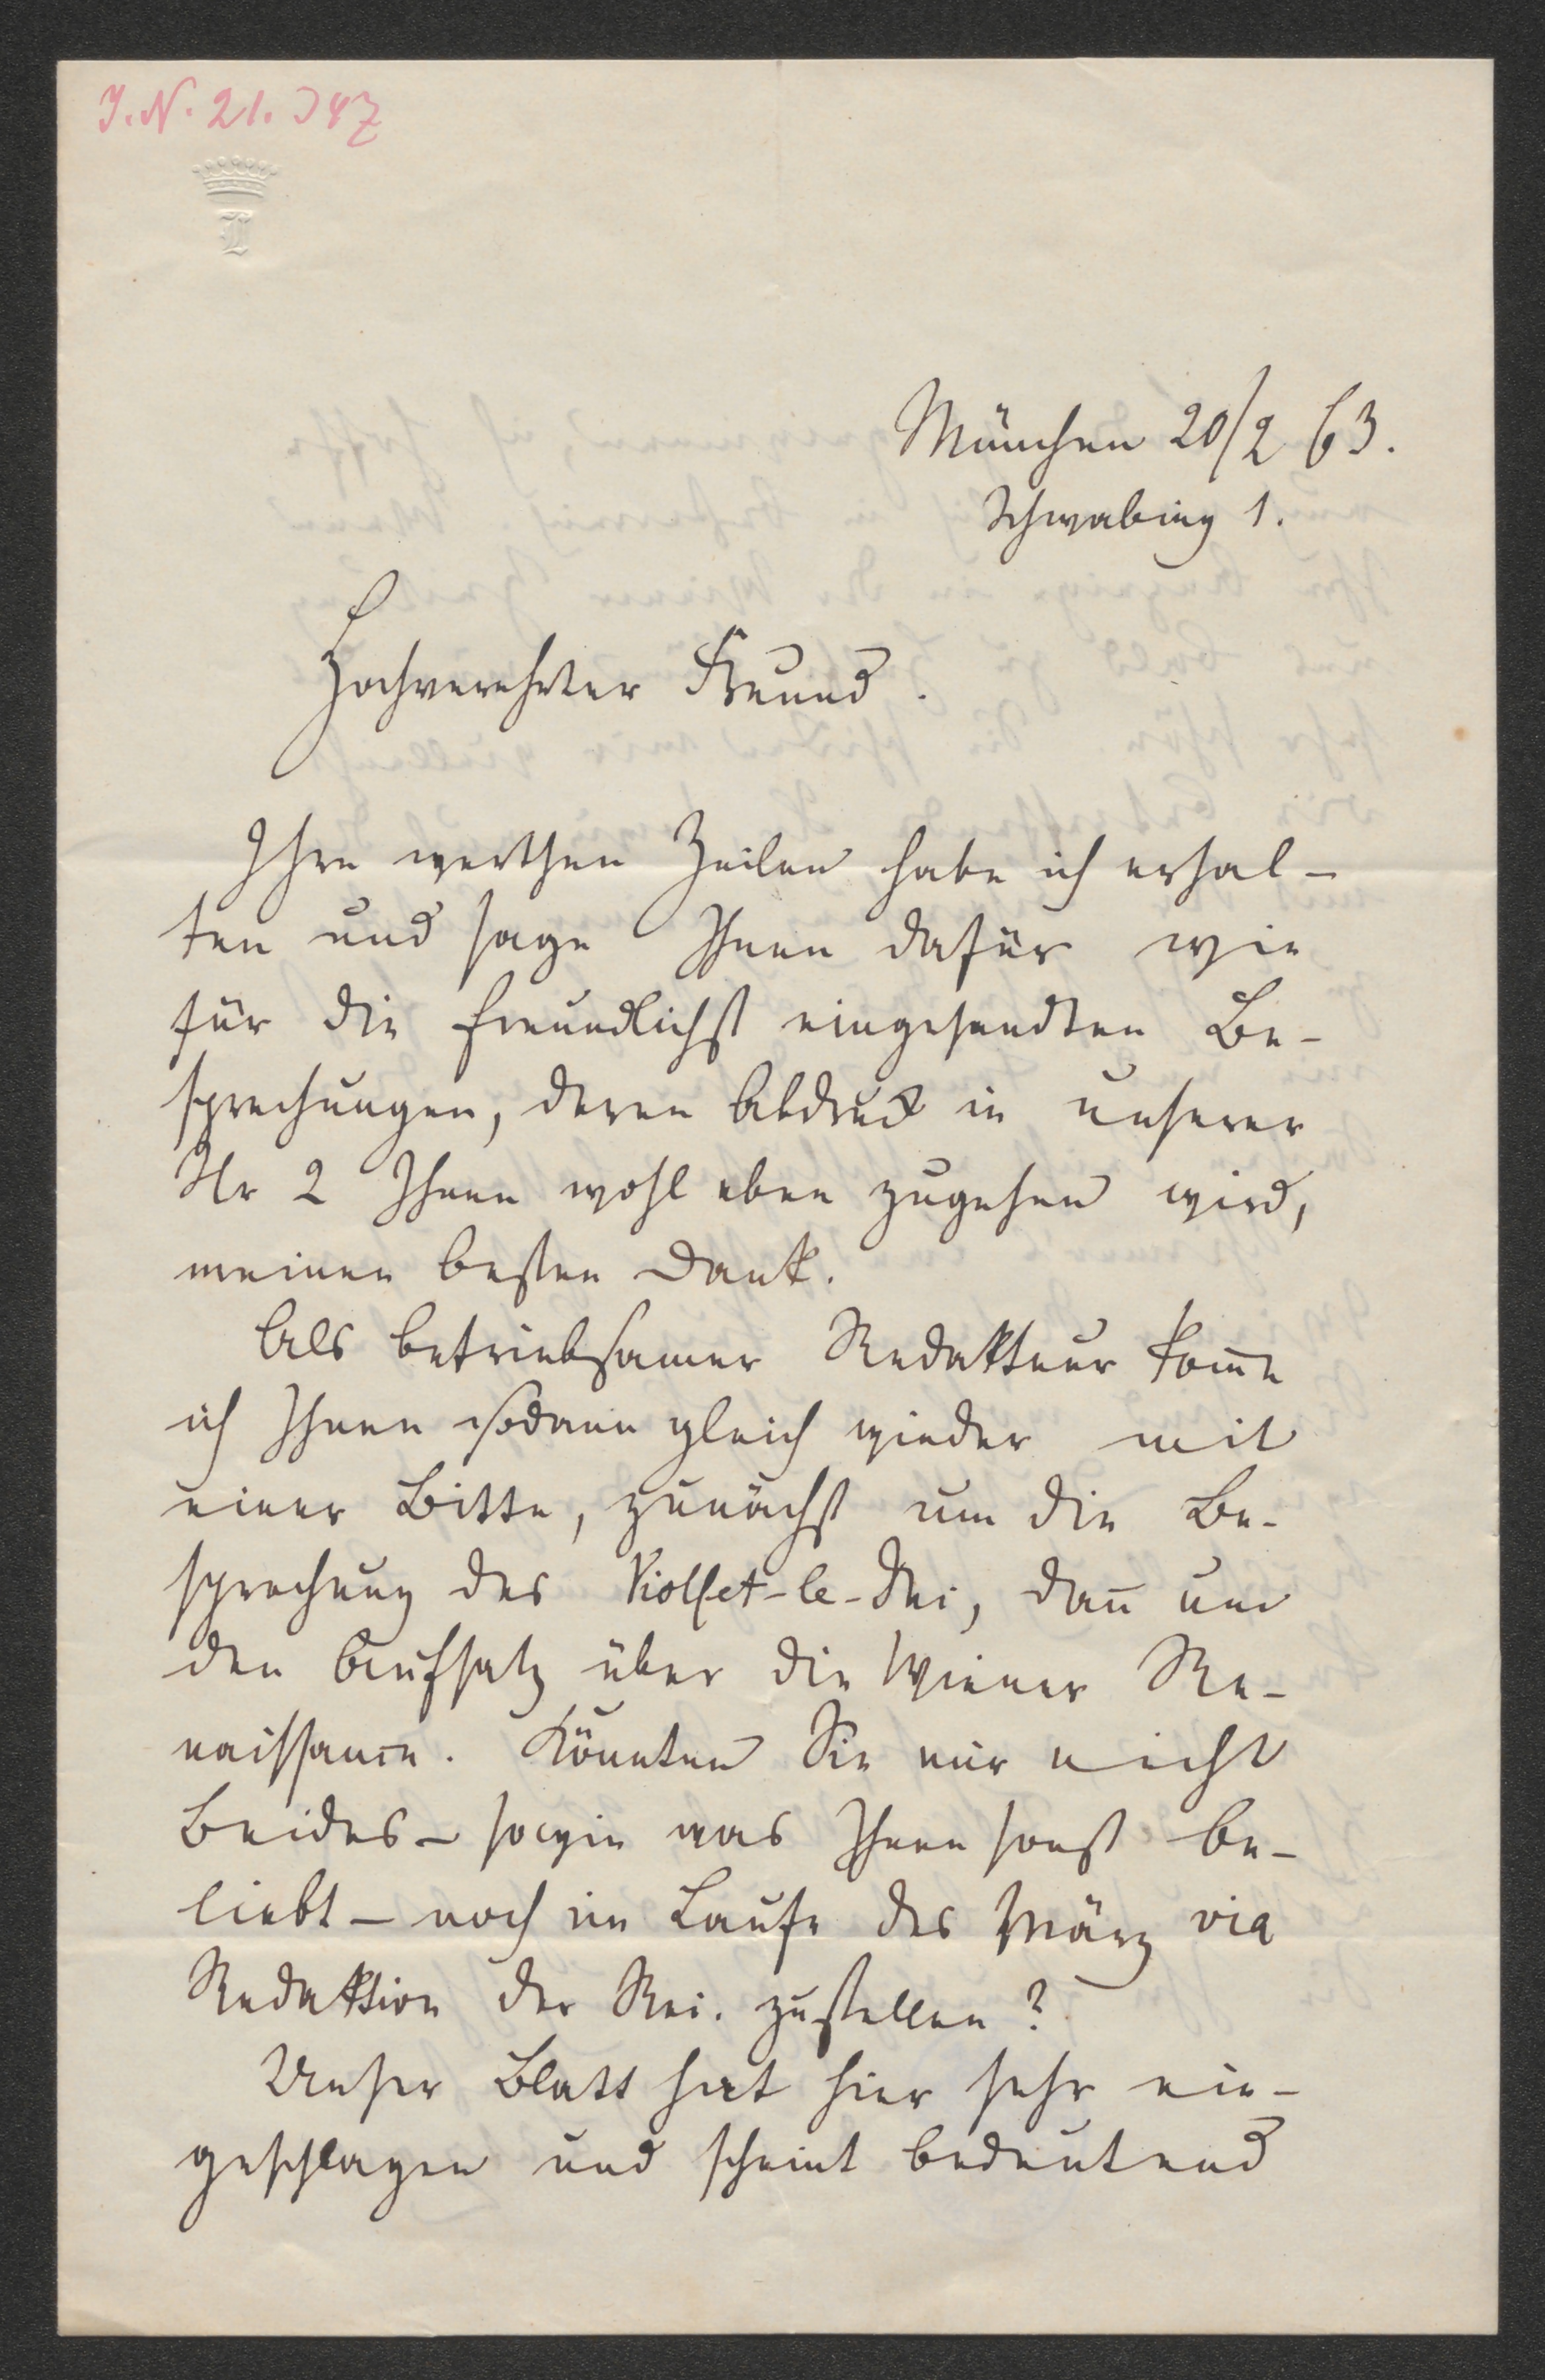 J.N. 21.347
L
München 20/2 63.
Schwabing 1.
Hochverehrter Freund.
Ihre werthen Zeilen habe ich erhal-
ten und sage Ihnen dafür wie
für die freundlichst eingesandten Be-
sprechungen, deren Abdruck in unserer
Nr 2 Ihnen wohl eben zugehen wird,
meinen besten Dank.
Als betriebsamer Redakteur kom̄e
ich Ihnen sodann gleich wieder mit
einer Bitte, zunächst um die Be-
sprechung des Viollet-le-Duc, dan̄ um
den Aufsatz über die Wiener Re-
naissance. Könnten Sie mir nicht
Beides - sowie was Ihnen sonst be-
liebt - noch im Laufe des März via
Redaktion der Rec. zustellen?
Unser Blatt hat hier sehr ein-
geschlagen und scheint bedeutend